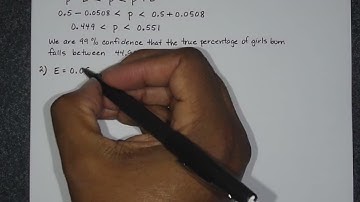 0.5 - 0.0508 < p < 0.5 + 0.0508
0.449 < p < 0.551
We are 99% confidence that the true percentage of girls born
falls between 44.9
2) E = 0.0